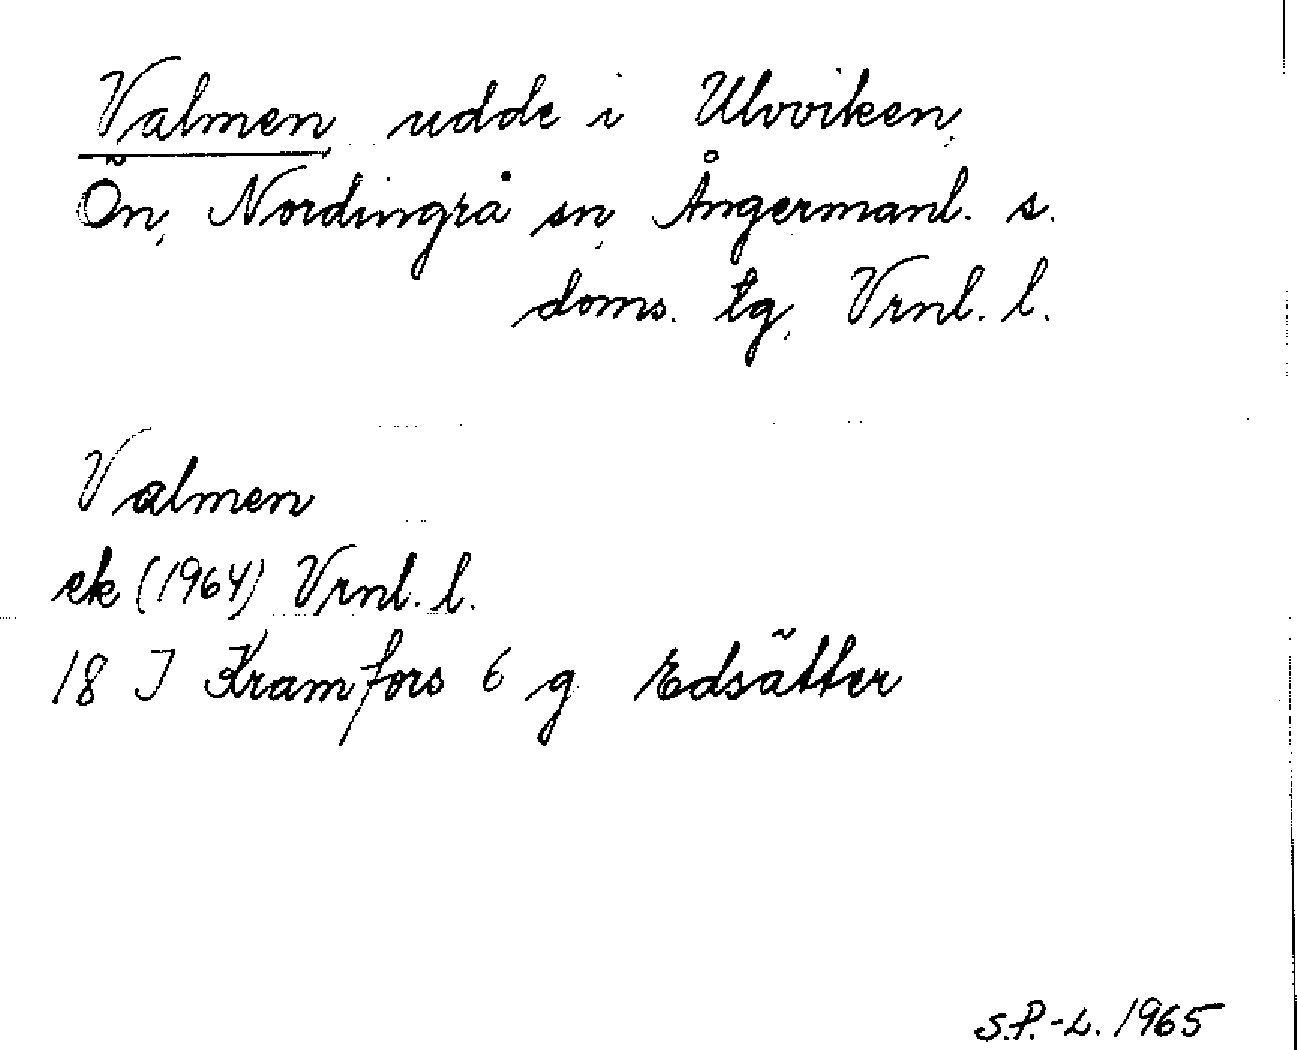 Valmen udde i Ulvviken,
Ön, Nordingrå sn, Ångermanl. s.
doms. tg, Vrnl. l.
Valmen
ek (1964) Vrnl. l.
18 I Kramfors 6 g Edsätter
S.P.-L. 1965